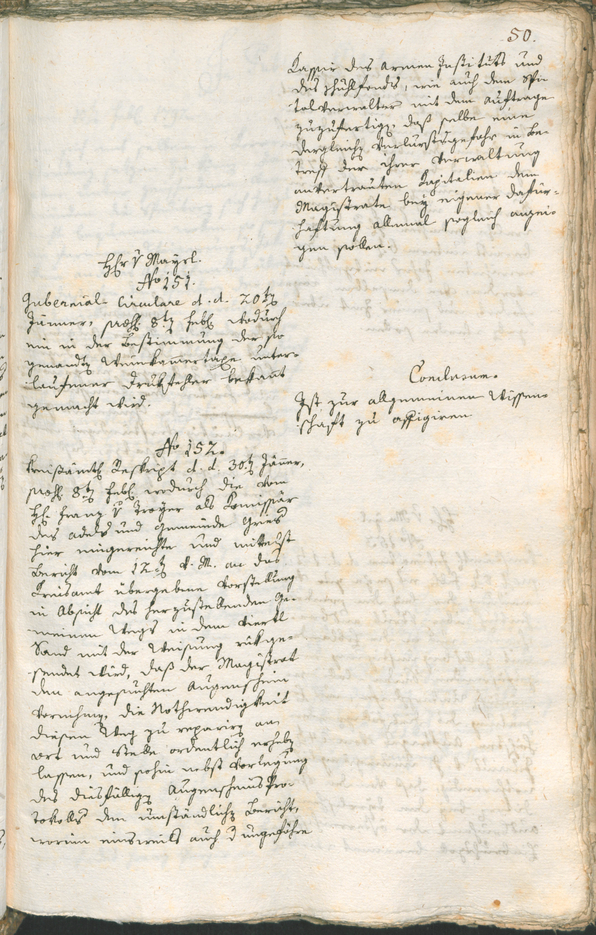 50.
Kassier des Armen Instituts und
des Schulfonds, wie auch dem Spi¬
talverwalter mit dem Auftrage
zuzufertigen, daß selbe eine
dergleichen Verlurstsgefahr in be¬
treff der ihrer Verwaltung
anvertrauten Kapitalien dem
Magistrate bey eigener Dafür¬
haftung allemal sogleich anzei¬
gen sollen.
Hr v Mayrl.
No 151.
Gubernial-Circulare d. d. 20ten
Jänner, 8ten Febr. wodurch
ein in der Bestimmung der so
genannten Weinkamertaxe unter¬
laufener Drukfehler bekannt
gemacht wird.
Conclusum.
Ist zur allgemeinen Wissen¬
schaft zu affigiren
No 152.
Kreisämtl. Reskript d. d. 30ten Jänner,
8ten Febr. wodurch die vom
H. Franz v Troyer als Komissär
des Adels und Gemeinde Gries
hier eingereichte und mittelst
Bericht vom 12ten v. M. an das
Kreisamt übergebene Vorstellung
in Absicht des herzustellenden Ge¬
meinen Wegs in dem Viertl
Sand mit der Weisung rükge¬
sendet wird, daß der Magistrat
den angesuchten Augenschein
vornehmen, die Nothwendigkeit
diesen Weg zu repariren an
Ort und Stelle ordentlich erheben
lassen, und sohin nebst Vorlegung
des diesfälligen Augenscheins Pro¬
tokolls den umständlichen Bericht,
worinn einsweils auch d ungefähre